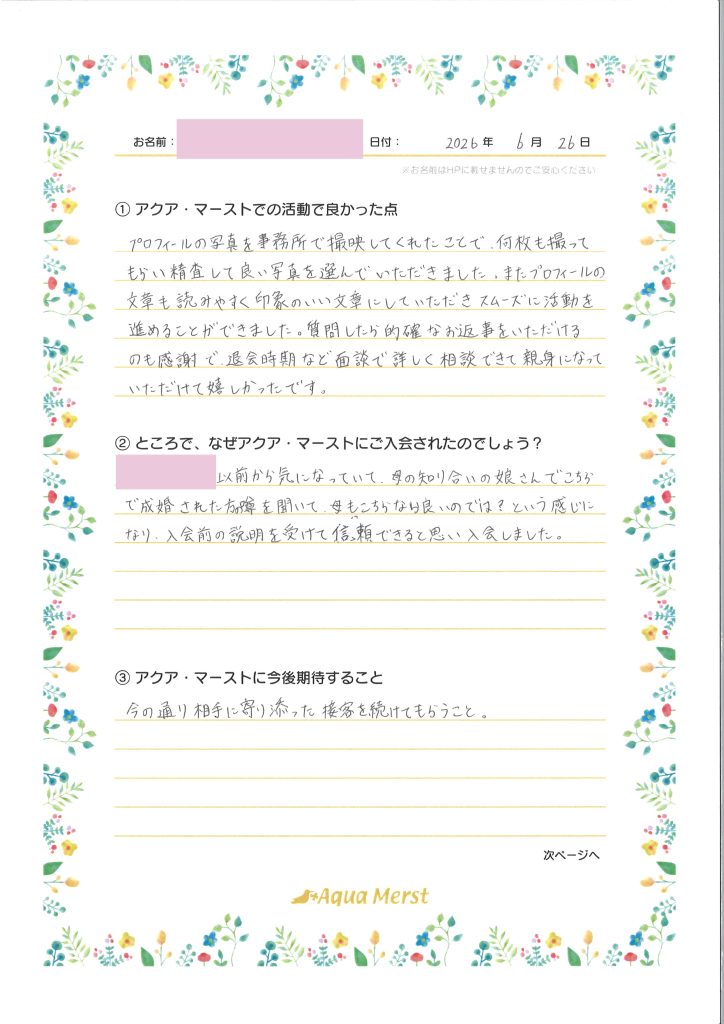 お名前：
日付： 2026年 6月 26日
※お名前はHPに載せませんのでご安心ください
① アクア・マーストでの活動で良かった点
プロフィールの写真を事務所で撮映してくれたことで、何枚も撮って
もらい精査して良い写真を選んでいただきました。またプロフィールの
文章も読みやすく印象のいい文章にしていただきスムーズに活動を
進めることができました。質問したら的確なお返事をいただける
のも感謝で、退会時期など面談で詳しく相談できて親身になって
いただけて嬉しかったです。
② ところで、なぜアクア・マーストにご入会されたのでしょう？
以前から気になっていて、母の知り合いの娘さんでこちら
で成婚された方を聞いて、母もこちらなら良いのでは？という感じに
なり、入会前の説明を受けて信頼できると思い入会しました。
③ アクア・マーストに今後期待すること
今の通り相手に寄り添った接客を続けてもらうこと。
次ページへ
Aqua Merst